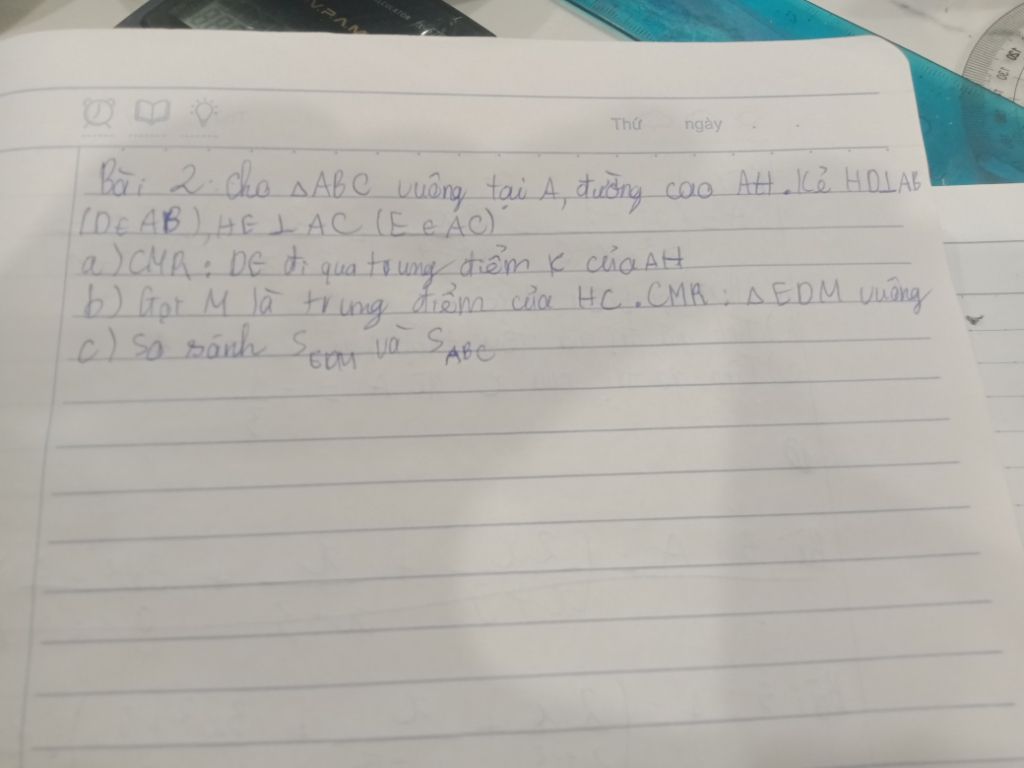 N.PAM
Thứ ngày
Bài 2: Cho △ABC vuông tại A, đường cao AH. Kẻ HD⊥AB
(D∈AB), HE⊥AC (E∈AC)
a) CMR: DE đi qua trung điểm K của AH
b) Gọi M là trung điểm của HC. CMR: △EDM vuông
c) So sánh S_EDM và S_ABC